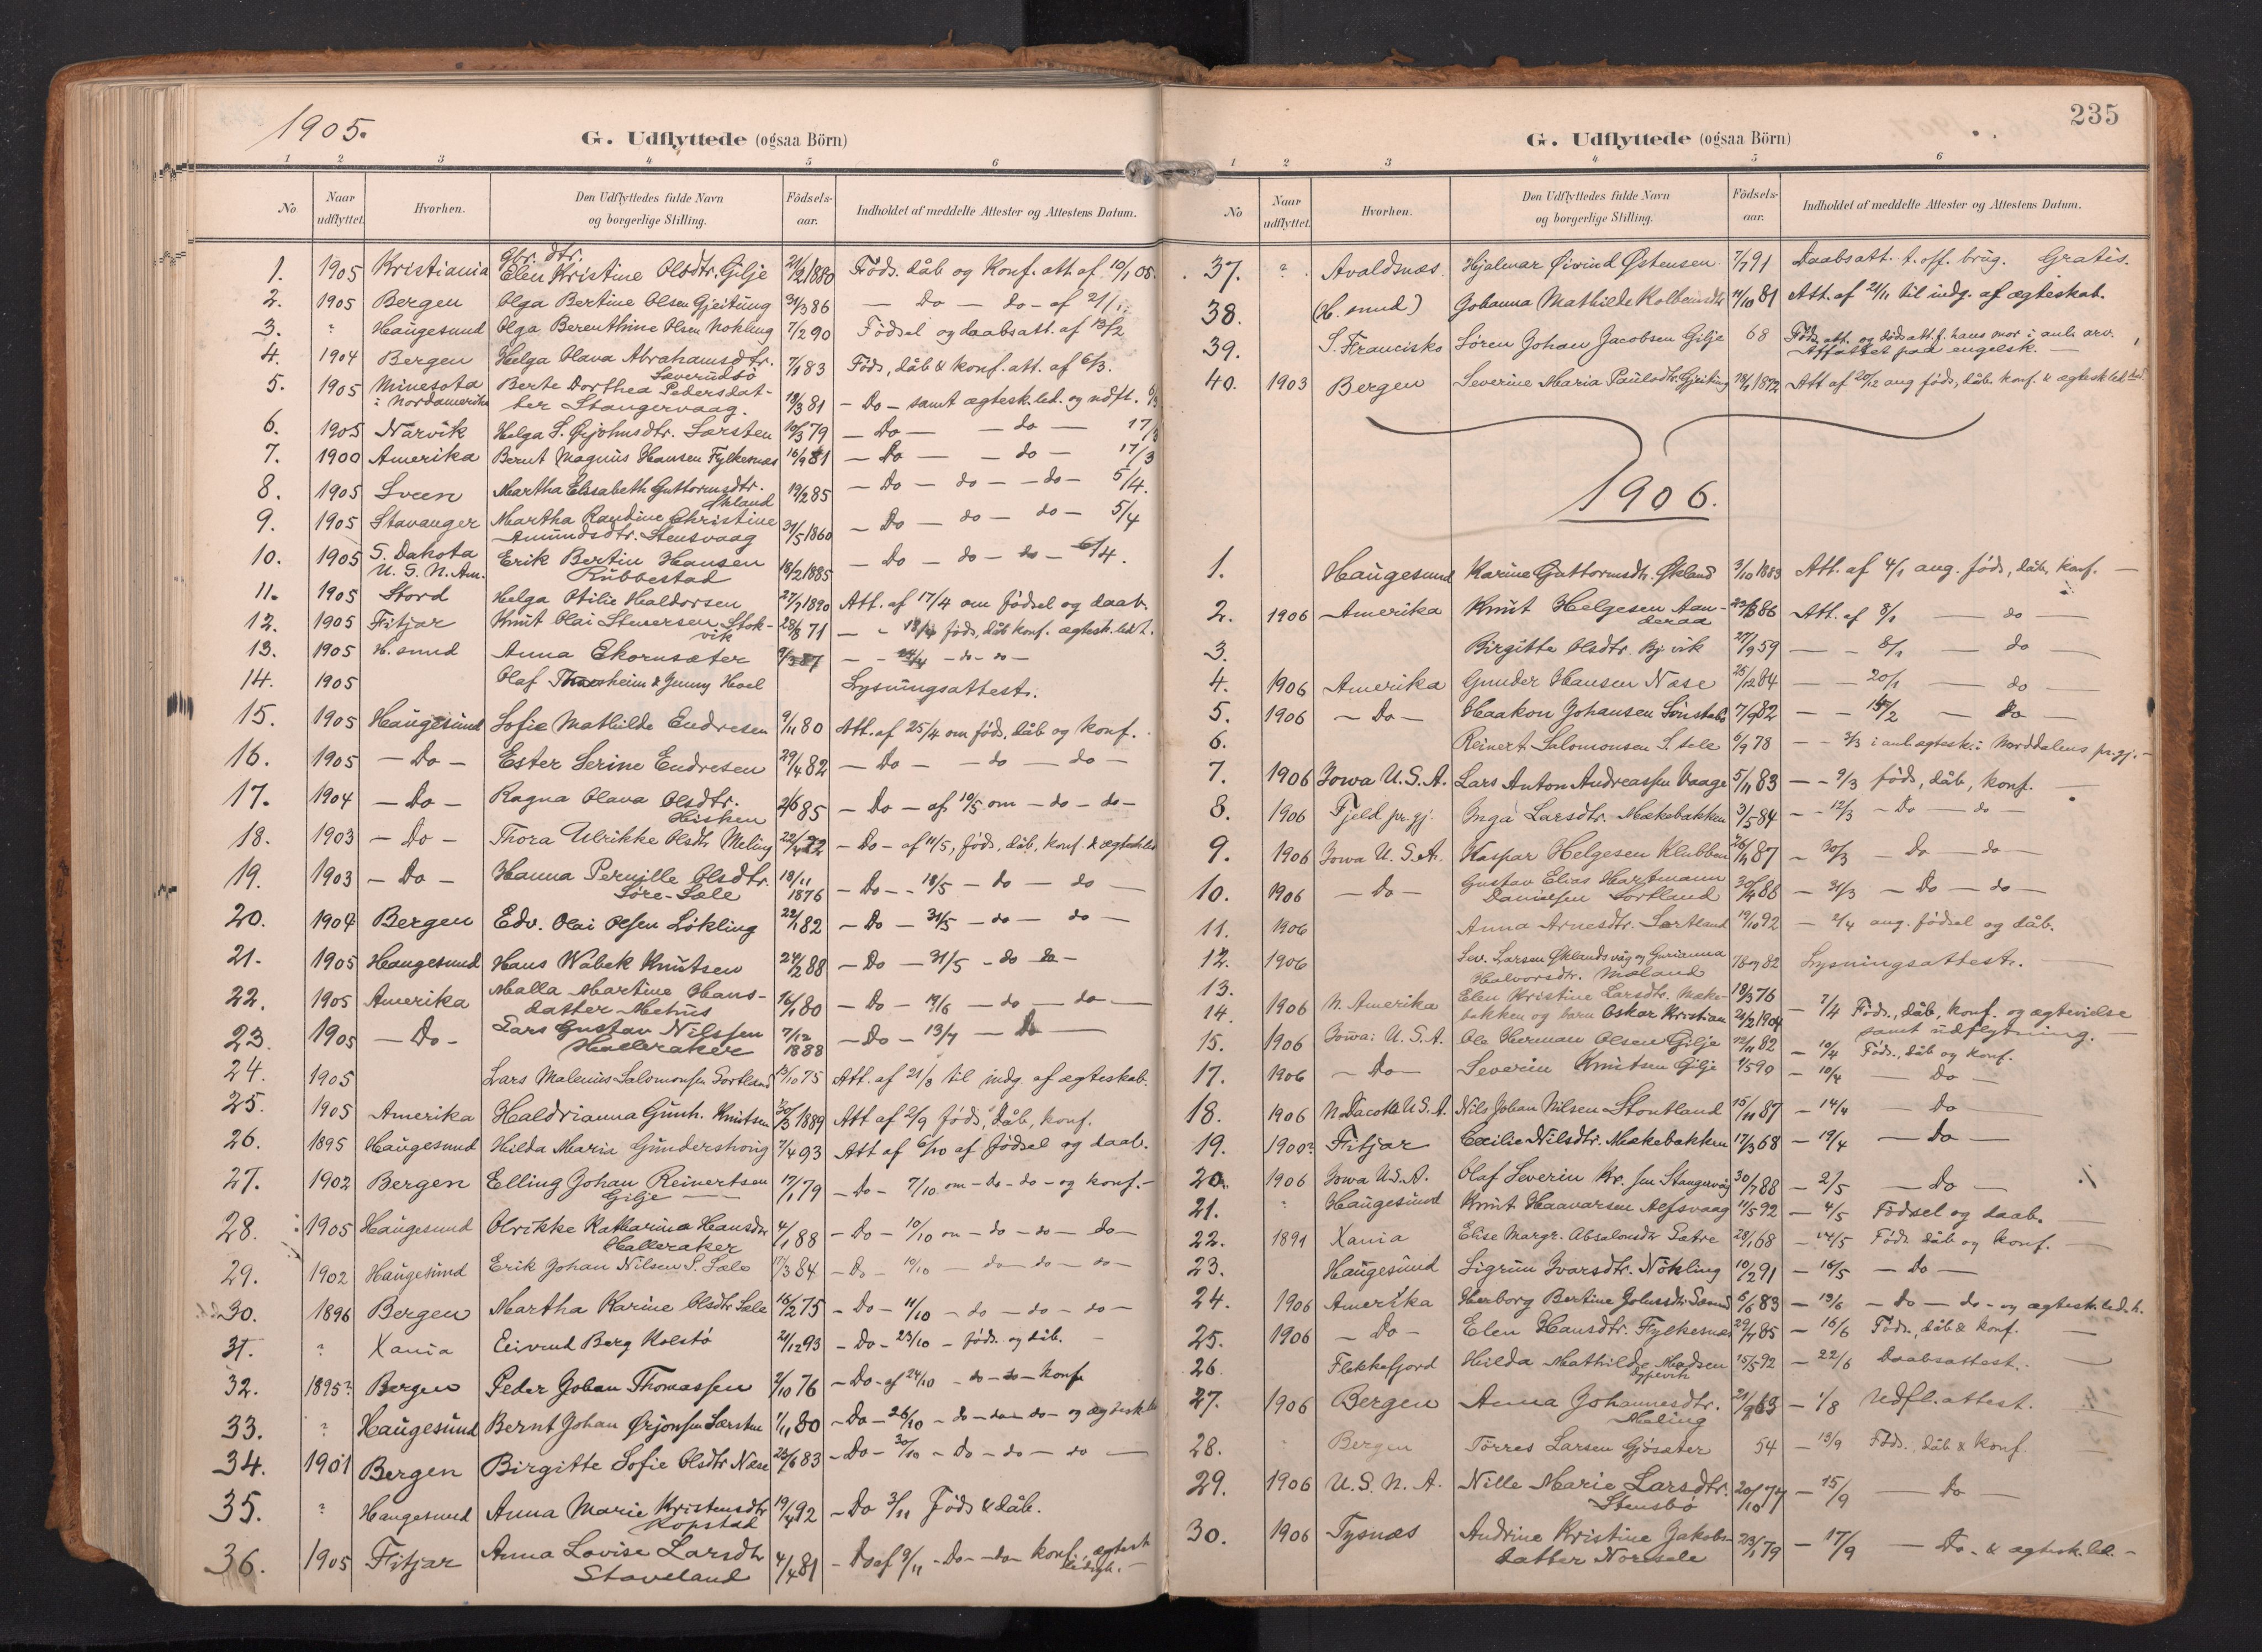 1905.
G. Udflyttede (ogsaa Börn)
1 2 3 4 5 6
No Naar udflyttet. Hvorhen. Den Udflyttedes fulde Navn og borgerlige Stilling. Födsels-aar. Indholdet af meddelte Attester og Attestens Datum.
1. 1905 Kristiania Gbr. dtr. Elen Kristine Olsdtr. Gilje 21/12 1880 Föds. dåb og Konf. att. af 10/1 05.
2. 1905 Bergen Olga Bertine Olsen Gjeitung 31/3 86 — Do — do — af 21/1.
3. " Haugesund Olga Berenthine Olsen Nokling 7/2 90 Födsel og daabsatt. af 13/2
4. 1904 Bergen Helga Olava Abrahamsdtr. 7/1 83 Föds, dåb & konf. att. af 6/3.
Saverudsö
5. 1905 Minesota Berte Dorthea Pedersdat-
i Nordamerika ter Stangervaag. 19/3 81 — Do — samt ægtesk. led. og udfl. 6/3
6. 1905 Narvik Helga S. Örjohnsdtr. Sørsten 10/3 79 — Do — — do — 17/3
7. 1900 Amerika Bernt Magnus Hansen Fylkesnæs 16/9 81 — Do — — do — 17/3
8. 1905 Sveen Martha Elisabeth Guttormsdtr. 19/2 85 — Do — do — — do — 5/4.
Økland
9. 1905 Stavanger Martha Randine Christine 31/5 1860 — Do — do — do — 5/4
Amundsdtr. Stensvaag
10. 1905 S. Dakota Erik Bertin Hansen 18/2 1885 — Do — do — do — 6/4.
U. S. N. Am. Rubbestad
11. 1905 Stord Helga Otilie Haldorsen 27/7 1890 Att. af 17/4 om födsel og daab.
12. 1905 Fitjar Knut Olai Stenersen Stok- 28/8 71 — " 18/4 föds, dåb konf. ægtesk. ledt.
vik
13. 1905 H. sund Anna Ekornsæter 9/3 87 — - 24/4 - do - do —
14. 1905 Olaf Thorsheim & Jenny Hoel Lysningsattest.
15. 1905 Haugesund Sofie Mathilde Endresen 9/11 80 Att. af 25/4 om föds. dåb og konf.
16. 1905 — Do — Ester Serine Endresen 29/4 82 — Do — — do — do —
17. 1904 — Do — Ragna Olava Olsdtr. 2/6 85 — Do — af 10/5 om — do — do —
Hisken
18. 1903 — Do — Thora Ulrikke Olsdtr Meling 22/4 72 — Do — af 11/5, föds, dåb, konf. & ægtesk led
19. 1903 — Do — Hanna Pernille Olsdtr. 18/11 1876 — Do — - 18/5 — do — do —
Søre-Sæle
20. 1904 Bergen Edv. Olai Olsen Løkling 22/1 82 — Do — 31/5 — do — do —
21. 1905 Haugesund Hans Wabek Knutsen 24/2 88 — Do — 31/5 - do do —
22. 1905 Amerika Malla Martine Hans- 16/1 80 — Do — 19/6 — do — do —
datter Mehus
23. 1905 — Do — Lars Gustav Nilssen 7/12 1888 — Do — 13/7 — Do —
Halleraker
24. 1905 Lars Malenius Salomonsen Sortland 13/10 75 Att. af 21/8 til indg. af ægteskab.
25. 1905 Amerika Haldrianna Gunh. Knutsen 30/3 1889 Att af 2/9 föds, dåb, konf.
26. 1895 Haugesund Hilda Maria Gundershovig 7/4 93 Att af 6/10 af födsel og daab.
27. 1902 Bergen Elling Johan Reinertsen 17/1 79 — Do — 7/10 om — do — do — og konf. —
Gilje
28. 1905 Haugesund Olrikke Katharina Hansdtr 4/1 88 — Do — 10/10 om — do — do — Do —
Halleraker
29. 1902 Haugesund Erik Johan Nilsen S. Sæle 17/3 84 — Do — 10/10 — do — do — do —
30. 1896 Bergen Martha Karine Olsdtr Sæle 16/2 75 — Do — 11/10 — do — do — do —
31. ? Xania Eivind Berg Kolstö 21/12 93 — Do — 23/10 — föds. og dåb.
32. 1895? Bergen Peder Johan Thomassen 2/10 76 — Do — af 24/10 — do — do — konf.
33. ? Haugesund Bernt Johan Örjonsen Sørsten 1/11 80 — Do — 26/10 — do — do — do — og ægtesk led
34. 1901 Bergen Birgitte Sofie Olsdtr Næse 23/6 83 — Do — 30/10 — Do — do — do —
35. ? Haugesund Anna Marie Kristensdtr 19/4 92 — Do 3/11 Föds & dåb.
Kopstad
36. 1905 Fitjar Anna Lovise Larsdtr 4/4 81 — Do af 9/11 — Do — do — konf. ægtesk
Stoveland ledigh. —
235
G. Udflyttede (ogsaa Börn)
1 2 3 4 5 6
No Naar udflyttet. Hvorhen. Den Udflyttedes fulde Navn og borgerlige Stilling. Födsels-aar. Indholdet af meddelte Attester og Attestens Datum.
37. ? Avaldsnæs Hjalmar Öivind Østensen 7/7 91 Daabsatt. t. off. brug. Gratis.
38. (H. sund) Johanna Mathilde Kolbensdtr 11/10 81 Att. af 21/11 til indg. af ægteskab.
39. S. Francisko Sören Johan Jacobsen Gilje 68 Föds. att. og dödsatt. f. hans mor i anl. arv.
Affattet paa engelsk. —
40. 1903 Bergen Severine Maria Paulsdtr. Gjeitung 18/1 1872 Att af 20/12 ang föds, dåb. konf. & ægtesk led
1906.
1. Haugesund Karine Guttormsdtr. Økland 3/10 1883 Att. af 4/1 ang. föds, dåb, konf. —
2. 1906 Amerika Knut Helgesen Aan- 22/3 86 Att. af 8/1 — do —
deraa
3. Birgitte Olsdtr. Bj.vik 27/9 59 — - 8/1 — do —
4. 1906 Amerika Gunder Hansen Næse 25/12 84 — — 20/1 — do —
5. 1906 — Do — Haakon Johansen Sönstabö 7/9 82 — - 15/2 — do —
6. Reinert Salomonsen S. sele 6/9 78 — - 3/3 i anl. ægtesk. i Norddalens pr.gj. —
7. 1906 Iowa U.S.A. Lars Anton Andreassen Vaage 5/11 83 — - 9/3 föds, dåb, konf. —
8. 1906 Fjeld pr.gj. Inga Larsdtr. Mækebakken 3/5 84 — - 12/3 — Do — do —
9. 1906 Iowa U. S. A. Kaspar Helgesen Klubben 26/11 87 — 30/3 — Do — do —
10. 1906 — Do — Gustav Elias Hartmann 30/4 86 — 31/3 — Do — do —
Danielsen Sortland
11. 1906 Anna Arnesdtr. Sortland 19/10 92 — 2/4 ang. födsel og dåb.
12. 1906 Sev. Larsen Øklandsvåg og Gurianna 78 og 82 Lysningsattest. —
Halvorsdtr. Mæland
13. 1906 N. Amerika Elen Kristine Larsdtr. Mæke- 18/3 76 — 7/4 Föds., dåb, konf. og ægtevielse
14. bakken og barn Oskar Kristian 21/2 1904 samt udflytning. —
15. 1906 Iowa: U. S. A. Ole Herman Olsen Gilje 22/11 82 — 10/4 Föds., dåb og konf.
17. 1906 — Do — Severin Knutsen Gilje 4/5 90 — 10/4 — Do —
18. 1906 N. Dacota U.S.A. Nils Johan Nilsen Stoutland 15/11 87 — 14/4 — Do —
19. 1900? Fitjar Cecilie Nilsdtr. Mækebakken 17/3 68 — 19/4 — Do —
20. 1906 Iowa U.S.A. Olaf Severin Kr. sen Stangervåg 30/7 88 — 2/5 — Do —
21. " Haugesund Knut Haavarsen Alfsvaag 11/5 92 — 4/5 Födsel og daab. —
22. 1891 Xania Elise Margr. Absalonsdtr Sætre 28/1 68 — 14/5 Föds. dåb og konf. —
23. Haugesund Sigrun Ivarsdtr. Nökling 10/2 91 — 16/5 — Do —
24. 1906 Amerika Herborg Bertine Johnsdtr 5/6 83 — 13/6 — do — do — og ægtesk. led. h.
25. 1906 — Do — Elen Hansdtr. Fylkesnæs 29/7 85 — 16/6 Föds., dåb & konf. —
26. Flekkefjord Hilda Mathilde Madsen 15/5 92 — 22/6 Daabsattest. —
Dypevik
27. 1906 Bergen Anna Johannesdtr. 21/9 63 — 1/8 Udfl. attest. —
Mæling
28. Bergen Törres Larsen Gjösæter 54 — 13/9 Föds., dåb & konf. —
29. 1906 U. S. N. A. Nille Marie Larsdtr. 20/10 77 — 15/9 — Do —
Stensbö
30. 1906 Tysnæs Andrine Kristine Jakobs- 23/1 79 — 17/9 — Do. & ægtesk. led. —
datter Noresele